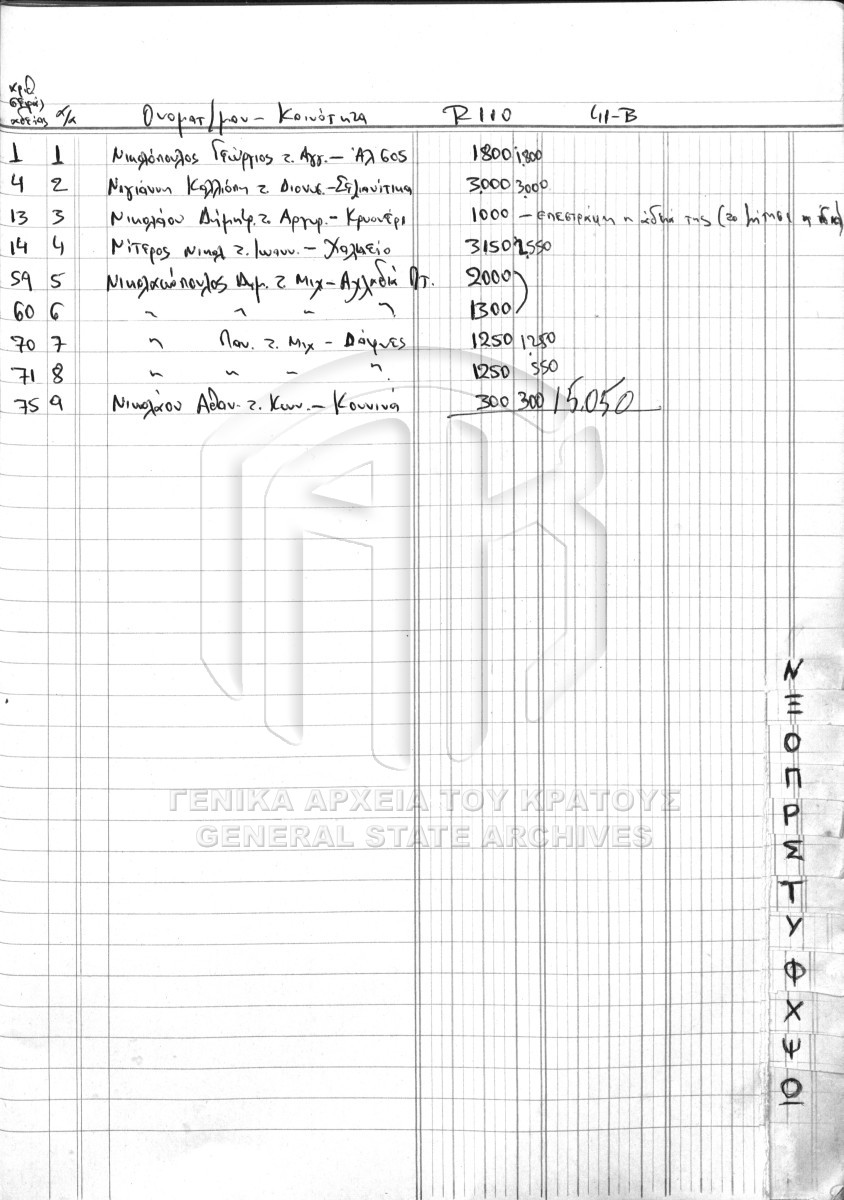 αριθ
σειράς
αδείας α/α Ονοματ/μον - Κοινότητα R110 41-B
1 1 Νικολόπουλος Γεώργιος τ. Αγγ. - Άλσος 1800 1.800
4 2 Νιγιάννη Καλλιόπη τ. Διονυσ. - Σελιανίτικα 3.000 3.000
13 3 Νικολάου Δήμητρ. τ. Αργυρ. - Κρυονέρι 1000 - επεστράφη η άδειά της
14 4 Νίτερος Νικολ τ. Ιωανν. - Χαλκείο 3150 2.550
59 5 Νικολακόπουλος Δημ. τ. Μιχ - Αχλαδιά Πτ. 2000
60 6 " " " " 1300
70 7 " Παν. τ. Μιχ - Δάφνες 1250 1250
71 8 " " " " 1250 550
75 9 Νικολάου Αθαν. τ. Κων. - Κουνινά 300 300 15.050
ΓΕΝΙΚΑ ΑΡΧΕΙΑ ΤΟΥ ΚΡΑΤΟΥΣ
GENERAL STATE ARCHIVES
Ν
Ξ
Ο
Π
Ρ
Σ
Τ
Υ
Φ
Χ
Ψ
Ω